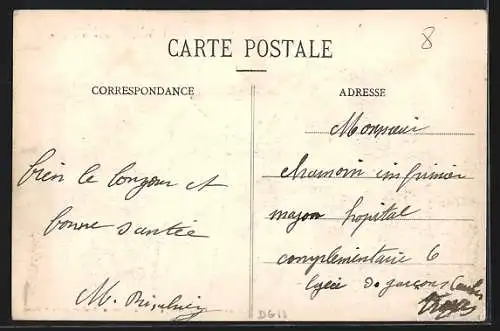 CARTE POSTALE
8
CORRESPONDANCE
ADRESSE
Monsieur
chamoin infirmier
major hopital
complementaire 6
lycée de garçons
Troyes
bien le bonjour et
bonne santée
M.
DG11